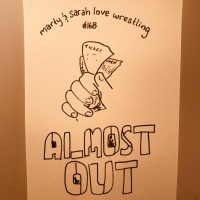 marty & sarah love wrestling
#168
TICKET
ALMOST
OUT